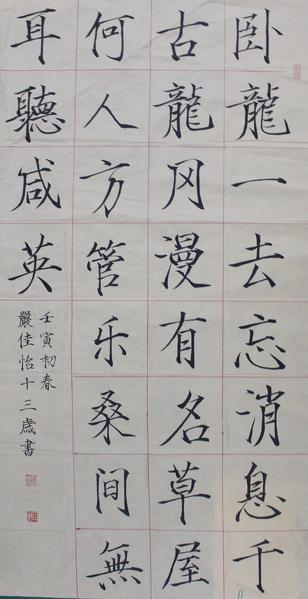 卧龍一去忘消息千
古龍冈漫有名草屋
何人方管乐桑间無
耳聽咸英
壬寅初春
嚴佳怡十三歲書